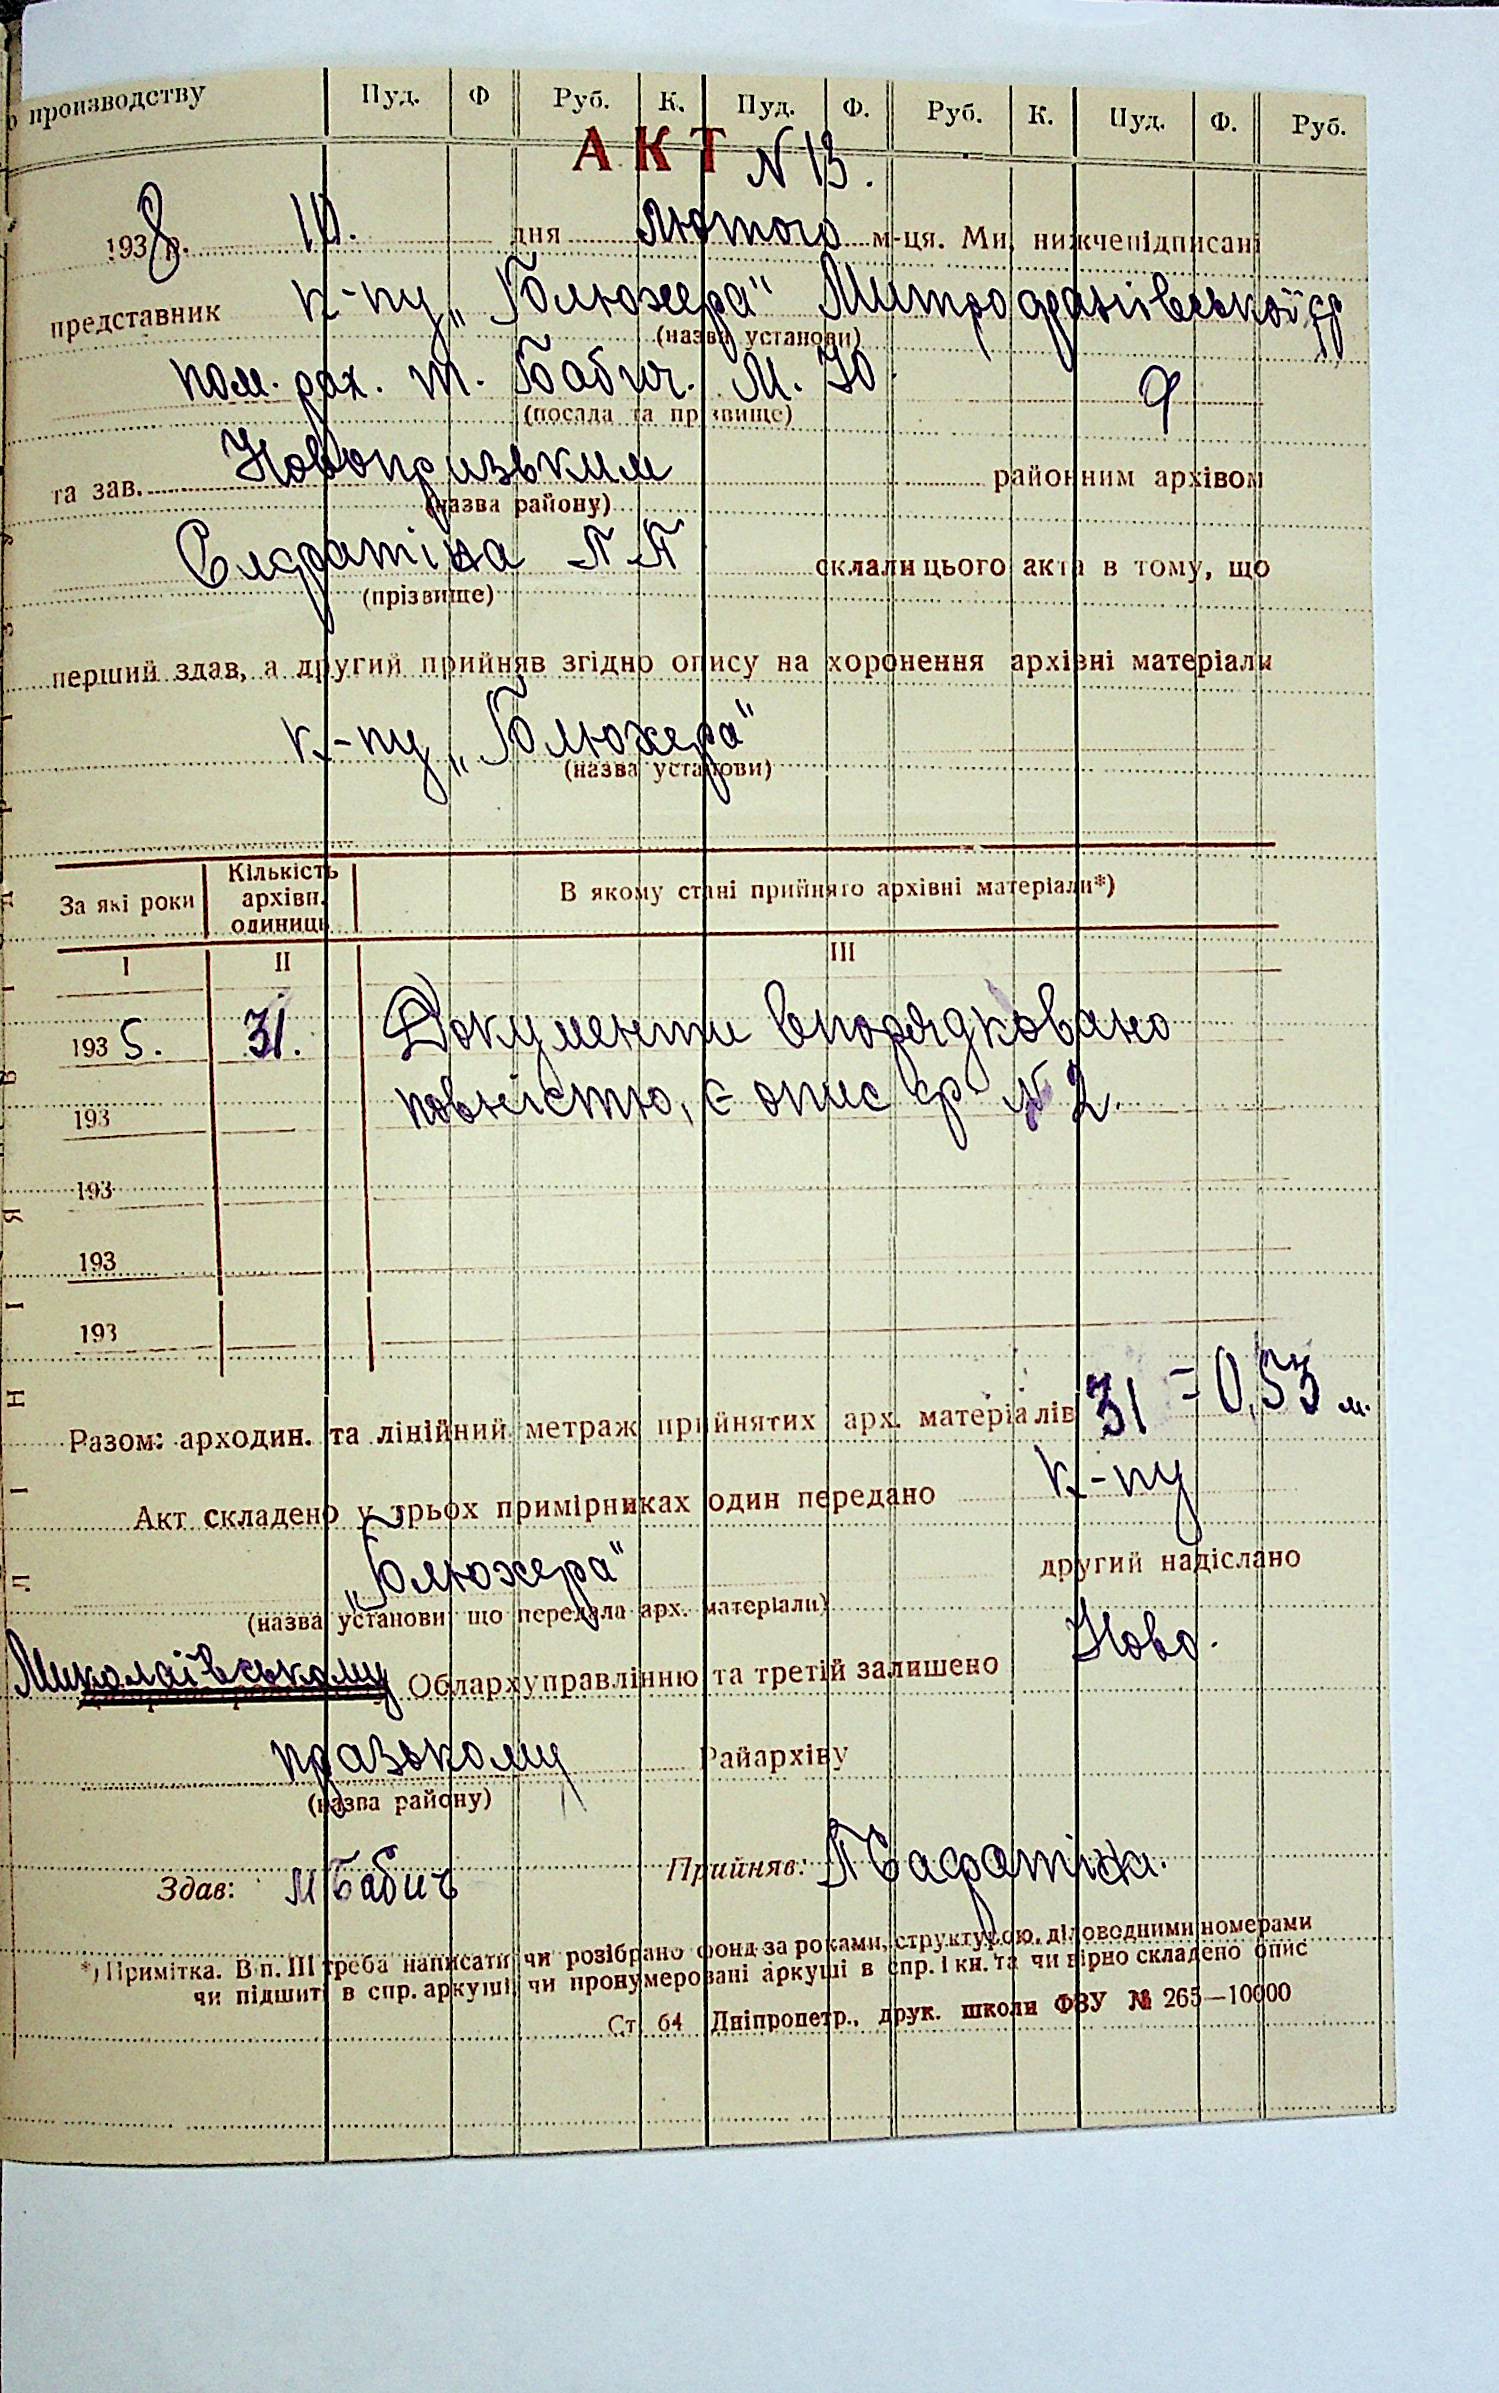 производству Пуд. Ф Руб. К. Пуд. Ф. Руб. К. Пуд. Ф. Руб.
АКТ N 13.
1938 р. 10. дня лютого м-ця. Ми, нижчепідписані
представник к-пу „Блюхера" Митрофанівської ср
(назва установи)
пом. рах. т. Бабич. М. Ю.
(посада та прізвище)
та зав. Новопризьким районним архівом
(назва району)
П П склали цього акта в тому, що
(прізвище)
перший здав, а другий прийняв згідно опису на хоронення архівні матеріали
к-пу „Блюхера"
(назва установи)
За які роки Кількість архівн. одиниць В якому стані прийнято архівні матеріали*)
I II III
1935. 31. Документи впорядковано
193 повністю, є опис ф N 2.
193
193
193
Разом: арходин. та лінійний метраж прийнятих арх. матеріалів 31 = 0,53 м.
Акт складено у трьох примірниках один передано к-пу
„Блюхера" другий надіслано
(назва установи що передала арх. матеріали)
Миколаївському Облархуправлінню та третій залишено Ново-
празькому Райархіву
(назва району)
Здав: М Бабич Прийняв:
*) Примітка. В п. III треба написати чи розібрано фонд за роками, структурою, діловодними номерами
чи підшиті в спр. аркуші, чи пронумеровані аркуші в спр. і кн. та чи вірно складено опис
Ст 64 Дніпропетр., друк. школи ФЗУ № 265—10000